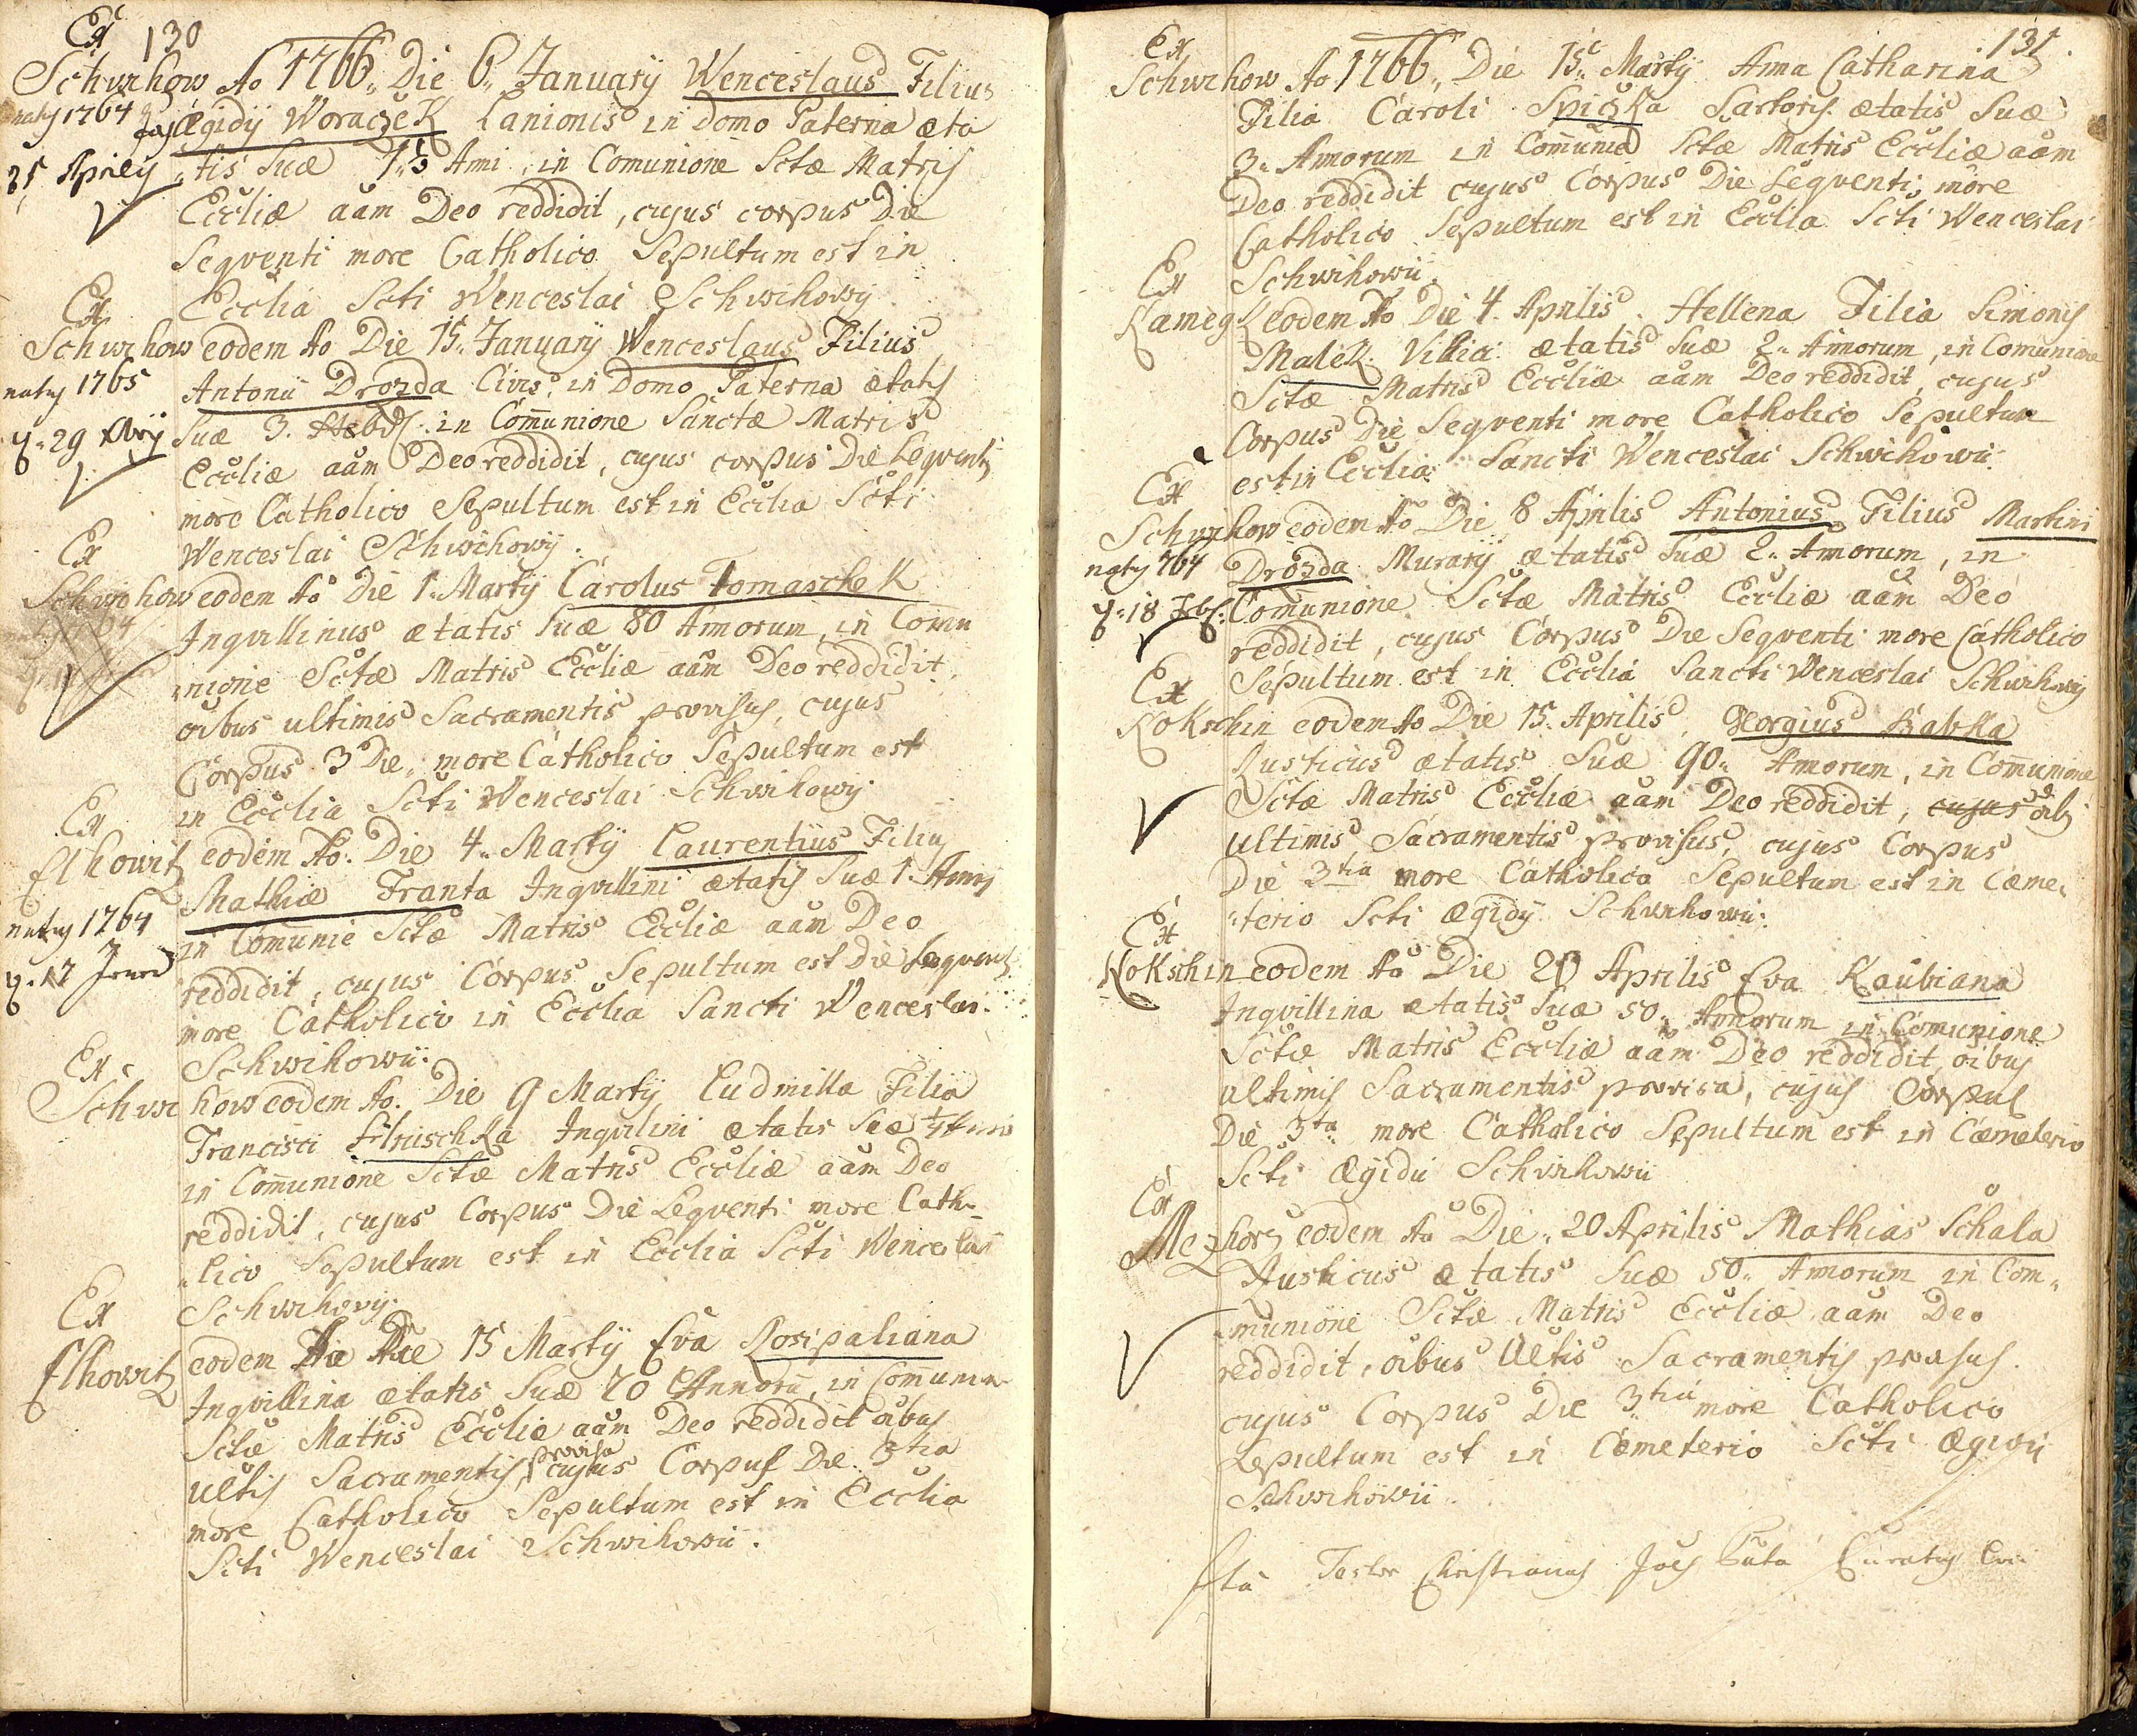 130
Ex
Schwihow Ao 1766. Die 6. January Wenceslaus Filius
natus 1764
Ægidÿ Woraczek Lanionis in domo Paterna æta
25 Aprilÿ
tis suæ 1½ Ami, in Comunione Sctæ Matris
Eccliæ aam Deo reddidit, cujus corpus Die
Seqventi more Catholico Sepultum est in
Ecclia Scti Wenceslai Schwihowÿ.
Ex
Schwihow eodem Ao Die 15. Januarÿ Wenceslaus Filius
natus 1765
Antonii Drozda Civis, in Domo Paterna ætatis
29 Xbrÿ
suæ 3. Hebd. in Comunione Sanctæ Matris
Eccliæ aam Deo reddidit, cujus corpus Die seqventi
more Catholico Sepultum est in Ecclia Scti
Wenceslai Schwihowÿ.
Ex
Schwihow eodem Ao Die 1. Martÿ Carolus Tomaschek
Inqvillinus ætatis suæ 80 Annorum, in Comu
nione Sctæ Matris Eccliæ aam Deo reddidit
oibus ultimis Sacramentis provisus, cujus
Corpus 3 Die, more Catholico Sepultum est
in Ecclia Scti Wenceslai Schwihowÿ.
Ex
Elhowitz eodem Ao. Die 4. Martÿ Laurentius Filius
Mathiæ Franta Inqvillini ætatis suæ 1.
natus 1764
in Comunie Sctæ Matris Eccliæ aam Deo
17
reddidit, cujus Corpus Sepultum est Die seqventi
more Catholico in Ecclia Sancti Wenceslai
Schwihowii.
Ex
Schwihow eodem Ao. Die 9 Martÿ Ludmilla Filia
Francisci Inqvilini ætatis suæ
in Comunione Sctæ Matris Eccliæ aam Deo
reddidit, cujus Corpus Die Seqventi more Catho
lico Sepultum est in Ecclia Scti Wenceslai
Schwihowÿ.
Ex
Elhowitz eodem Ao Die 15 Martÿ Eva Rosipaliana
Inqvillina ætatis suæ 70 Annorum, in Comunione
Sctæ Matris Eccliæ aam Deo reddidit oibus
ultis Sacramentis provisa cujus Corpus Die 3tia
more Catholico Sepultum est in Ecclia
Scti Wenceslai Schwihowii.
131.
Ex
Schwihow Ao 1766. Die 15. Martÿ Anna Catharina
Filia Caroli Spiczka Sartoris ætatis suæ
3. Annorum in Comunio Sctæ Matris Eccliæ aam
Deo reddidit cujus Corpus Die Seqventi, more
Catholico Sepultum est in Ecclia Scti Wenceslai
Schwihowii.
Ex
Kamegk eodem Ao Die 4. Aprilis. Hellena Filia Simonis
Malek Villici ætatis suæ 2. Annorum, in Comunione
Sctæ Matris Eccliæ aam Deo reddidit, cujus
Corpus Die Seqventi more Catholico Sepultum
est in Ecclia Sancti Wenceslai Schwihowii.
Ex
Schwihow eodem Ao Die 8 Aprilis Antonius Filius Martini
natus 764
Drozda Murarÿ ætatis suæ 2. Annorum, in
18
Comunione Sctæ Matris Eccliæ aam Deo
reddidit, cujus Corpus Die Seqventi more Catholico
Sepultum est in Ecclia Sancti Wenceslai Schwihowÿ
Ex
Kokschin eodem Ao Die 15. Aprilis, Georgius Babka
Rusticus ætatis suæ 90. Annorum, in Comunione
Sctæ Matris Eccliæ aam Deo reddidit, cujus oibus
ultimis Sacramentis provisus, cujus Corpus
Die 3tia more Catholico Sepultum est in Cæme
terio Scti Ægidÿ Schwihowii.
Ex
Kokschin eodem Ao Die 20 Aprilis Eva Kaubiana
Inqvillina ætatis suæ 50. Annorum in Comunione
Sctæ Matris Eccliæ aam Deo reddidit, oibus
ultimis Sacramentis provisa, cujus Corpus
Die 3tia more Catholico Sepultum est in Cæmeterio
Scti Ægidii Schwihowii
Ex
Mezhorz eodem Ao Die 20 Aprilis Mathias Schala
Rusticus ætatis suæ 50. Annorum in Com
munione Sctæ Matris Eccliæ aam Deo
reddidit, oibus Ultis Sacramentis provisus.
cujus Corpus Die 3tia more Catholico
Sepultum est in Cæmeterio Scti Ægidÿ
Schwihowii.
Ita Testor Christianus Curatus